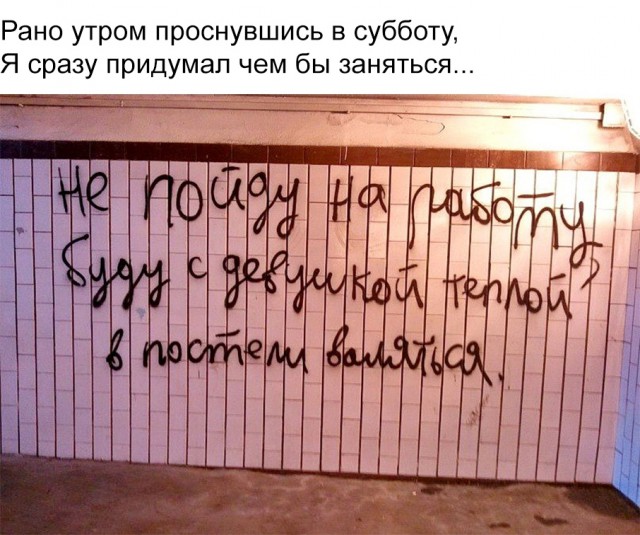 Рано утром проснувшись в субботу,
Я сразу придумал чем бы заняться...
не пойду на работу,
буду с девушкой теплой
в постели валяться.